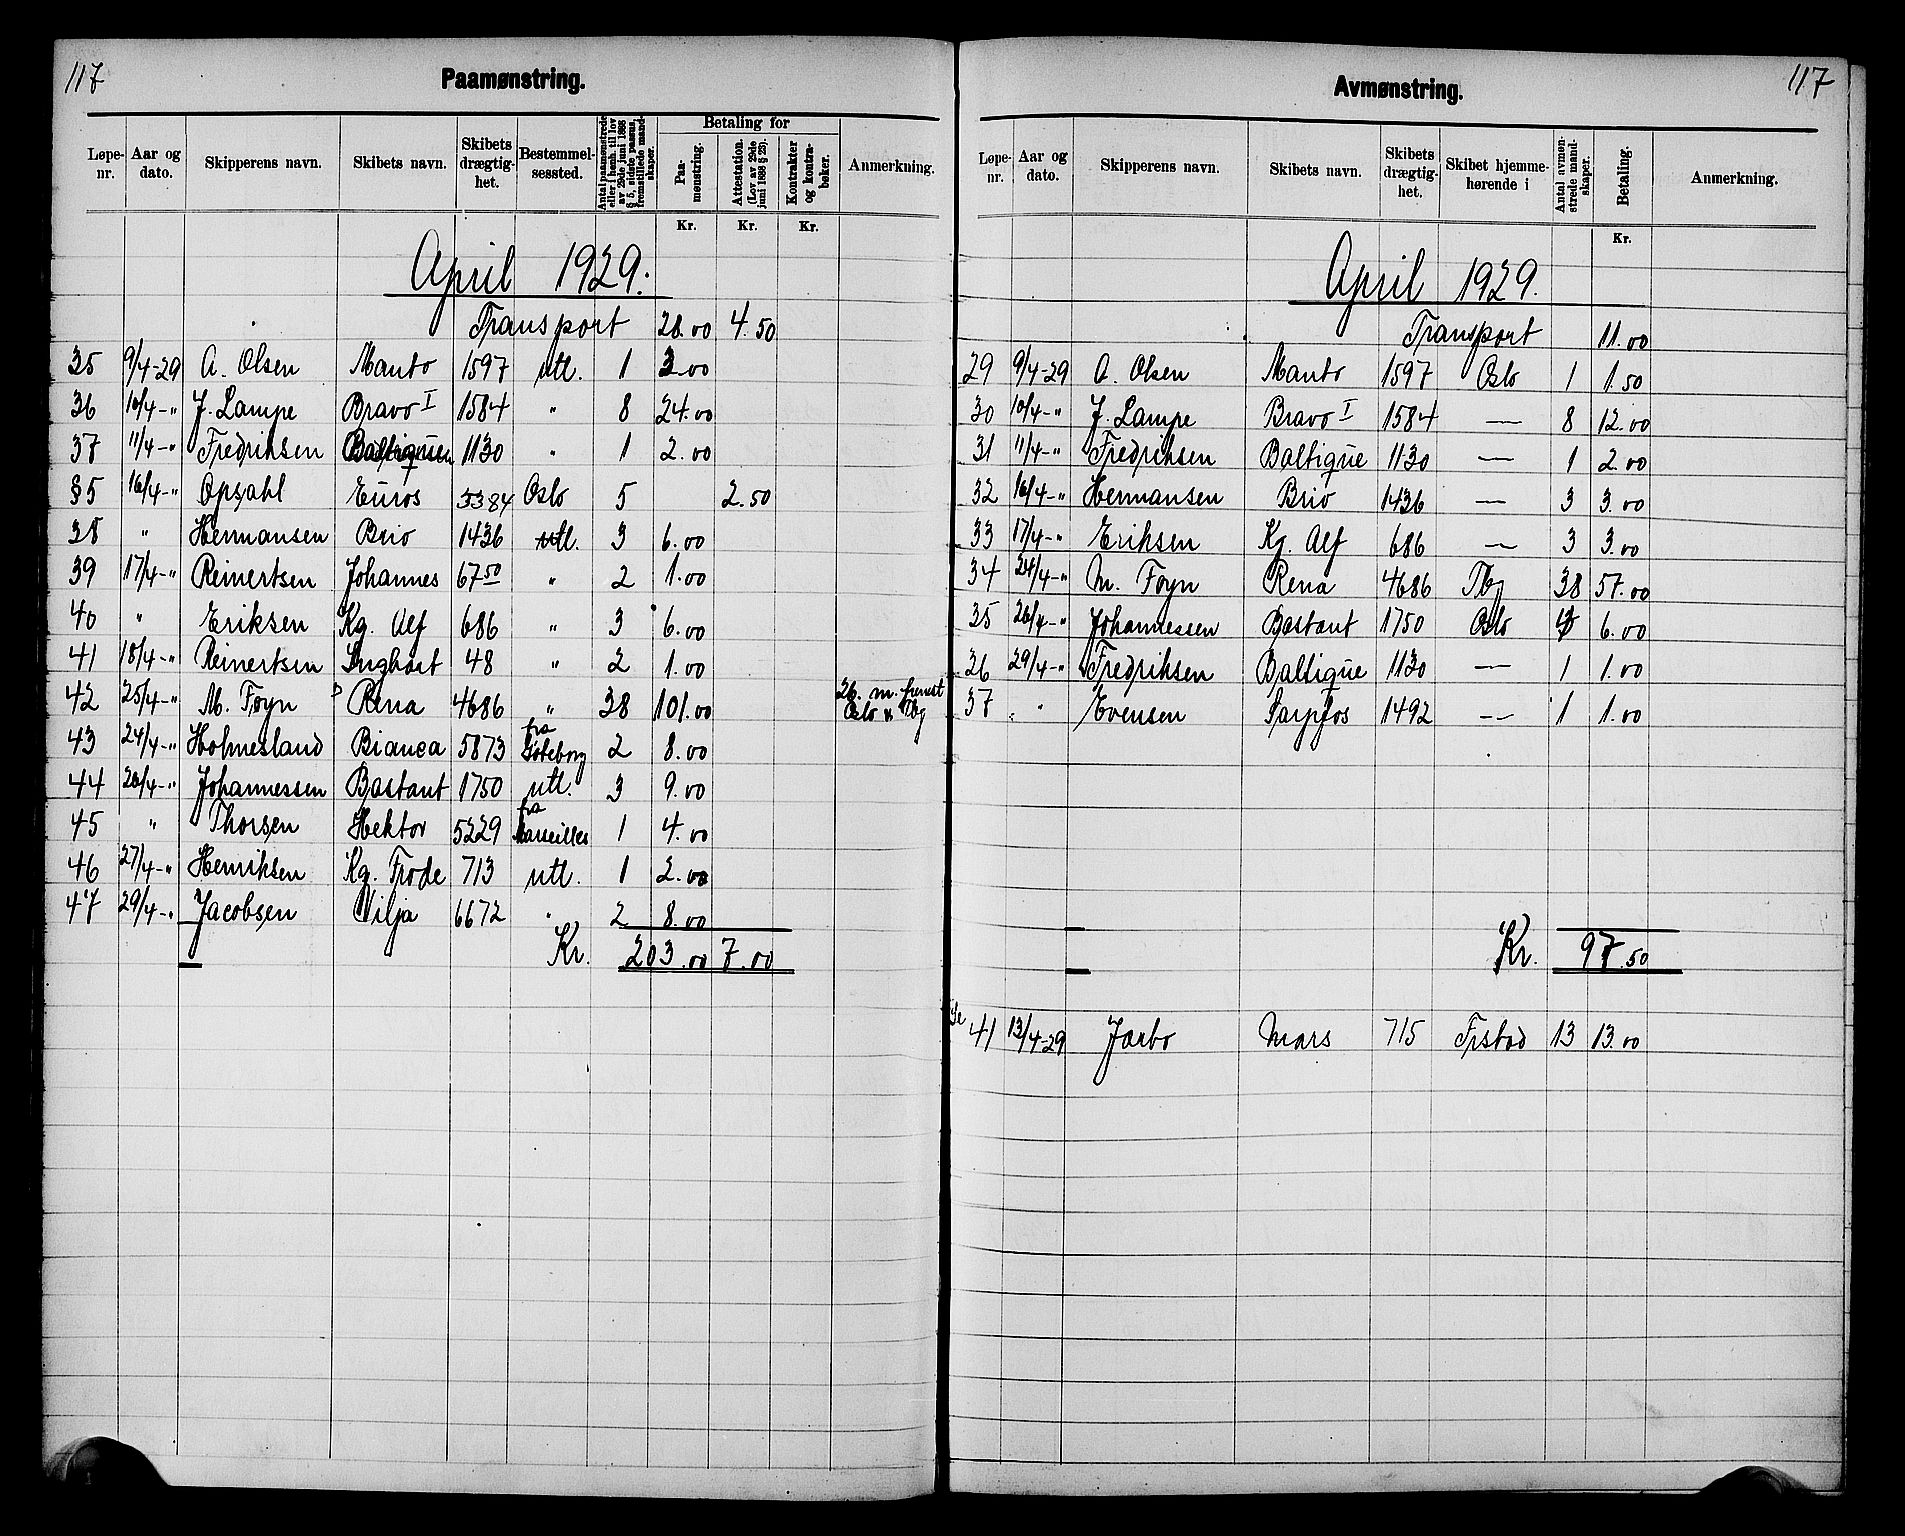 117
Paamønstring.
Løpe-nr. Aar og dato. Skipperens navn. Skibets navn. Skibets drægtig-het. Bestemmel-sessted. Antal paamønstrede eller i henh. til lov av 29de juni 1888 § 5, sidste passus, fremstillede mand-skaper. Betaling for Paa-mønstring. Attestation. (Lov av 29de juni 1888 § 23). Kontrakter og kontra-bøker. Anmerkning.
Kr. Kr. Kr.
April 1929.
Transport 28.00 4.50
35 9/4-29 A. Olsen Manto 1597 utl. 1 3.00
36 10/4-" J. Lampe Bravo I 1584 " 8 24.00
37 11/4-" Fredriksen 1130 " 1 2.00
§5 16/4-" Opsahl Euros 3384 Oslo 5 2.50
38 " Hermansen Brio 1436 utl. 3 6.00
39 17/4-" Reinertsen Johannes 67 50 " 2 1.00
40 " Eriksen Kg. Alf 686 " 3 6.00
41 18/4-" Reinertsen Snghart 48 " 2 1.00
42 25/4-" M. Foyn Rena 4686 " 38 101.00 26. m. fremst Oslo & Tbg
43 24/4-" Holmesland Bianca 5873 fra Göteborg 2 8.00
44 26/4-" Johannessen Bastant 1750 utl. 3 9.00
45 " Thorsen Hektor 5229 fra Marseilles 1 4.00
46 27/4-" Henriksen Kg. Frode 713 utl. 1 2.00
47 29/4-" Jacobsen Vilja 6672 " 2 8.00
Kr. 203.00 7.00
117
Avmønstring.
Løpe-nr. Aar og dato. Skipperens navn. Skibets navn. Skibets drægtig-het. Skibet hjemme-hørende i Antal avmøn-strede mand-skaper. Betaling. Anmerkning.
Kr.
April 1929.
Transport 11.00
29 9/4-29 A. Olsen Manto 1597 Oslo 1 1.50
30 10/4-" J. Lampe Bravo I 1584 — 8 12.00
31 11/4-" Fredriksen Baltique 1130 — 1 2.00
32 16/4-" Hermansen Brio 1436 — 3 3.00
33 17/4-" Eriksen Kg. Alf 686 — 3 3.00
34 24/4-" M. Foyn Rena 4686 Tbg 38 57.00
35 26/4-" Johannessen Bastant 1750 Oslo 4 6.00
36 29/4-" Fredriksen Baltique 1130 — 1 1.00
37 " Evensen Sarpfos 1492 — 1 1.00
Kr. 97.50
Se 41 13/4-29 Jarbo Mars 715 Frstad 13 13.00